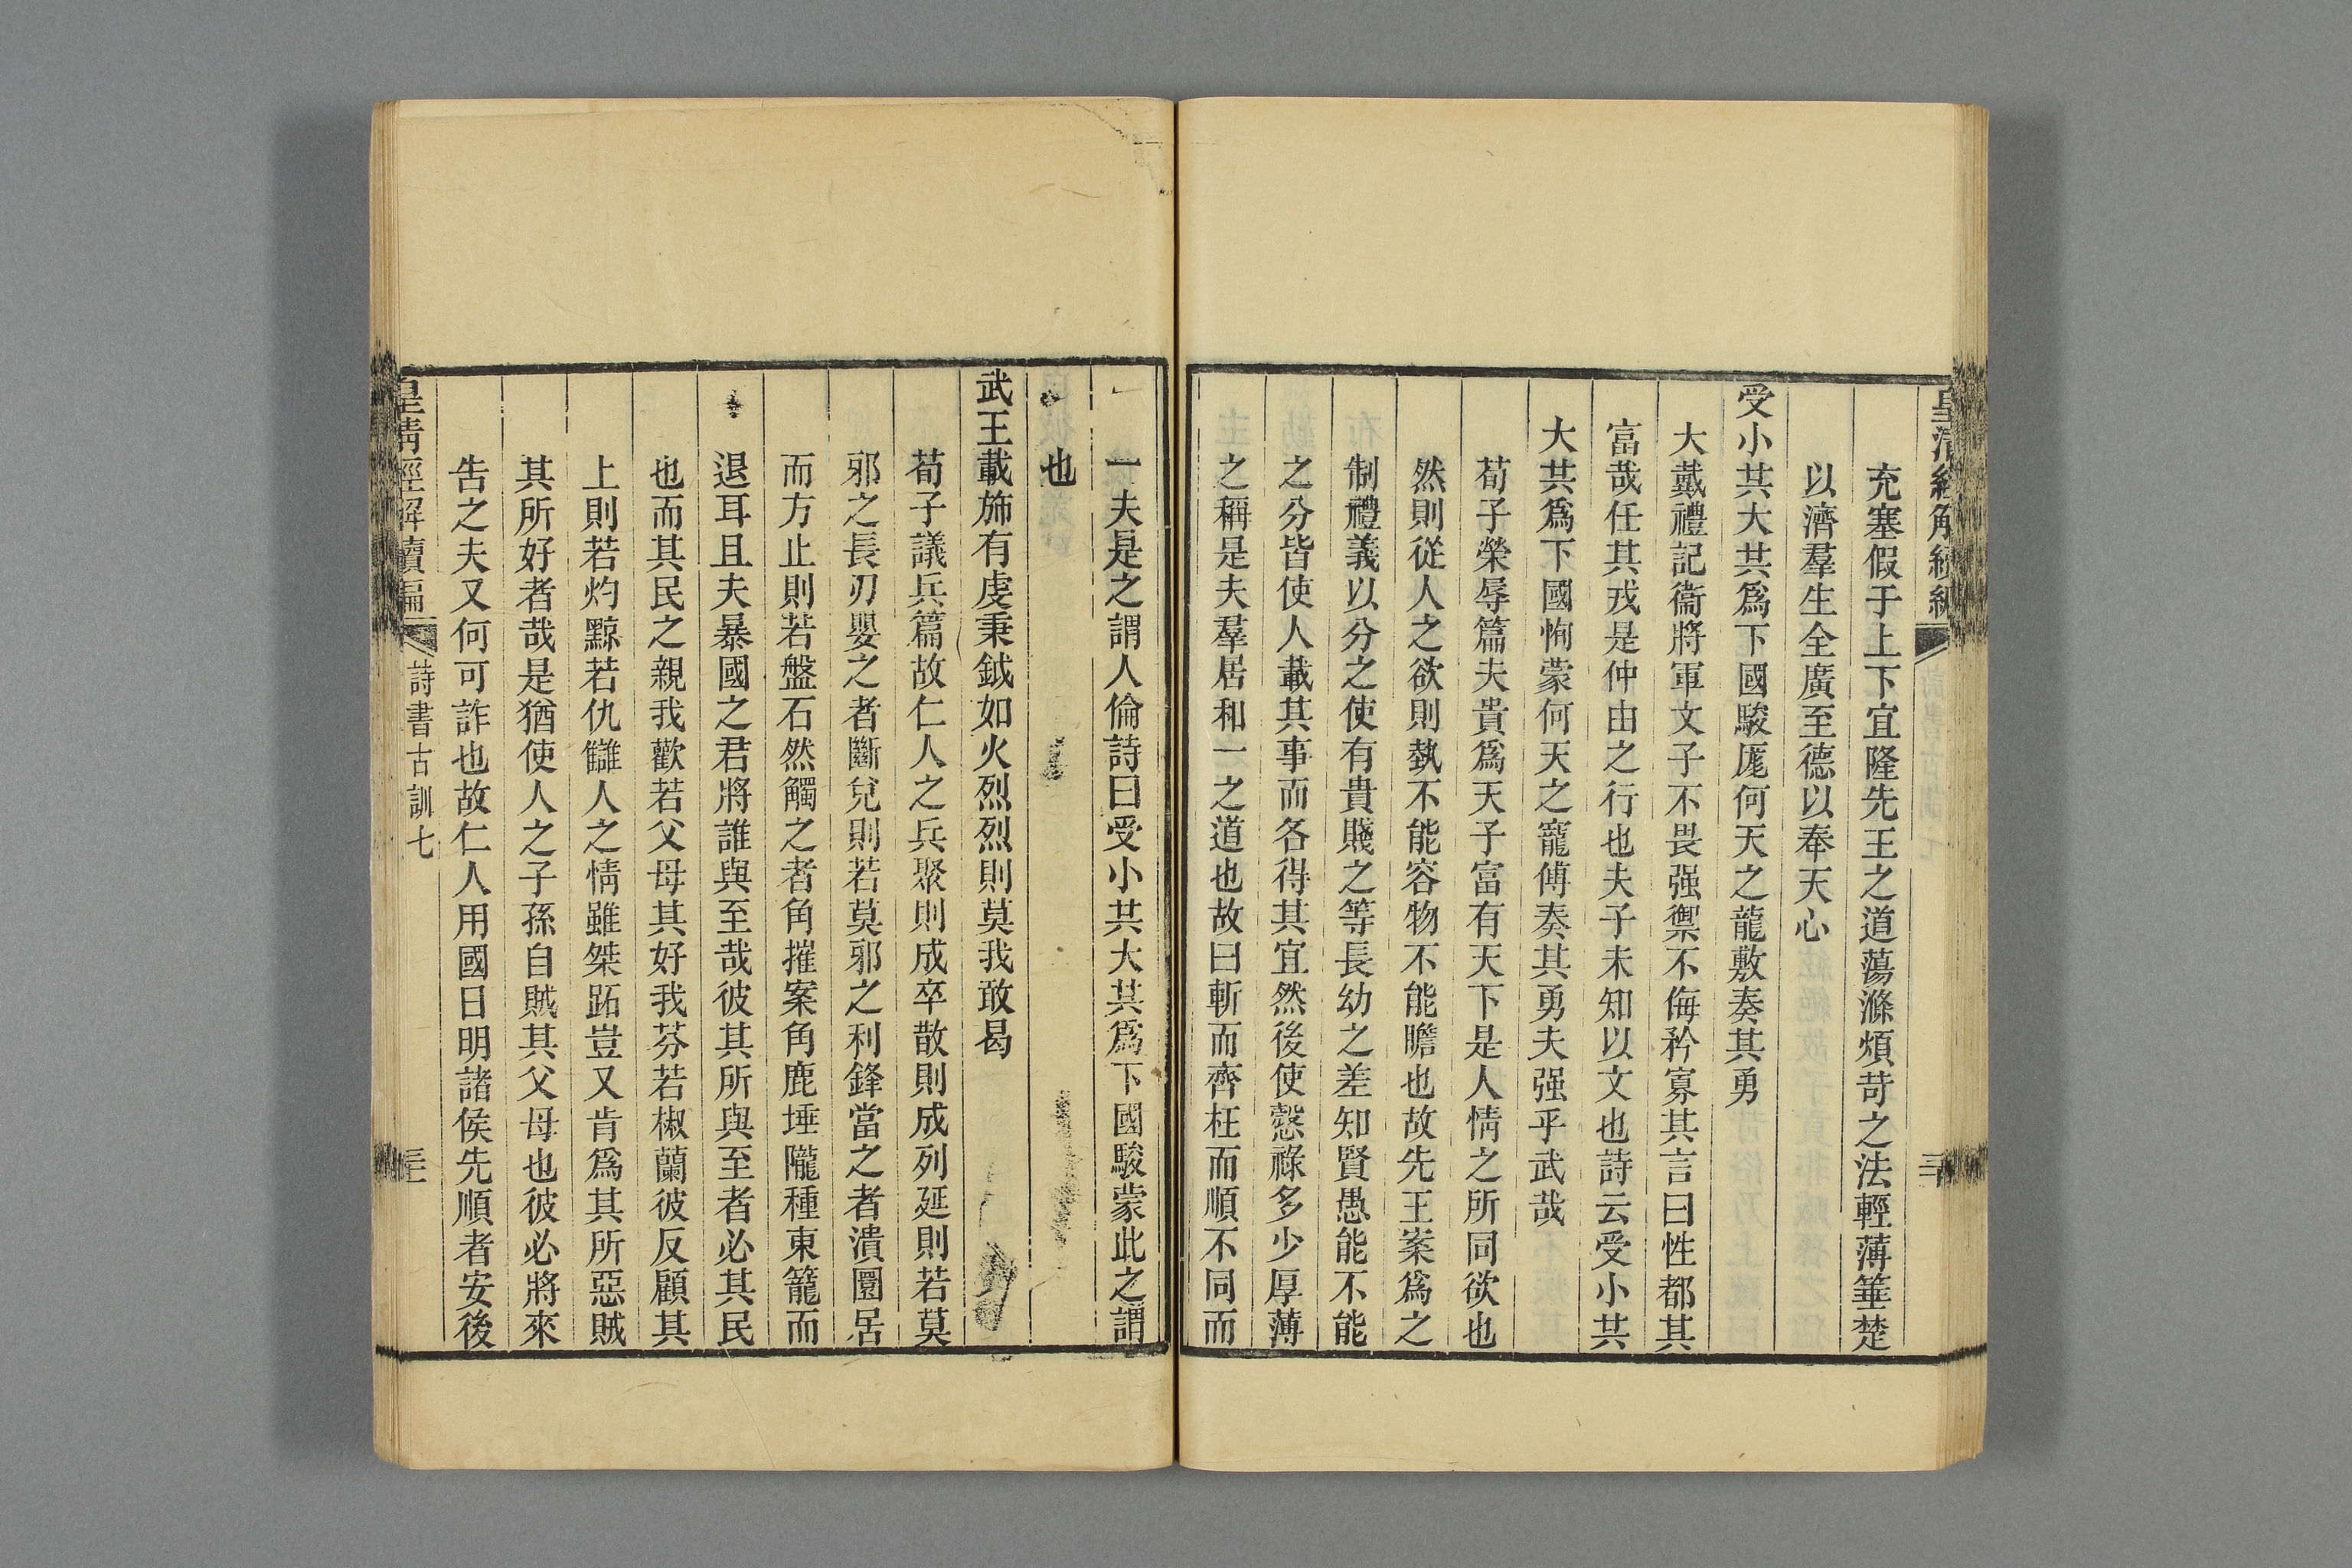 充塞假于上下宜隆先王之道蕩滌煩苛之法輕薄箠楚
以濟羣生全廣至德以奉天心
受小共大共爲下國駿厖何天之龍敷奏其勇
大戴禮記衞將軍文子不畏强禦不侮矜寡其言曰性都其
富哉任其戎是仲由之行也夫子未知以文也詩云受小共
大共爲下國恂蒙何天之寵傅奏其勇夫强乎武哉
荀子榮辱篇夫貴爲天子富有天下是人情之所同欲也
然則從人之欲則埶不能容物不能贍也故先王案爲之
制禮義以分之使有貴賤之等長幼之差知賢愚能不能
之分皆使人載其事而各得其宜然後使慤祿多少厚薄
之稱是夫羣居和一之道也故曰斬而齊枉而順不同而
一夫是之謂人倫詩曰受小共大共爲下國駿蒙此之謂
也
武王載斾有虔秉鉞如火烈烈則莫我敢曷
荀子議兵篇故仁人之兵聚則成卒散則成列延則若莫
邪之長刃嬰之者斷兌則若莫邪之利鋒當之者潰圜居
而方止則若盤石然觸之者角摧案角鹿埵隴種東籠而
退耳且夫暴國之君將誰與至哉彼其所與至者必其民
也而其民之親我歡若父母其好我芬若椒蘭彼反顧其
上則若灼黥若仇讎人之情雖桀跖豈又肯爲其所惡賊
其所好者哉是猶使人之子孫自賊其父母也彼必將來
告之夫又何可詐也故仁人用國日明諸侯先順者安後
皇清經解續編 詩書古訓七